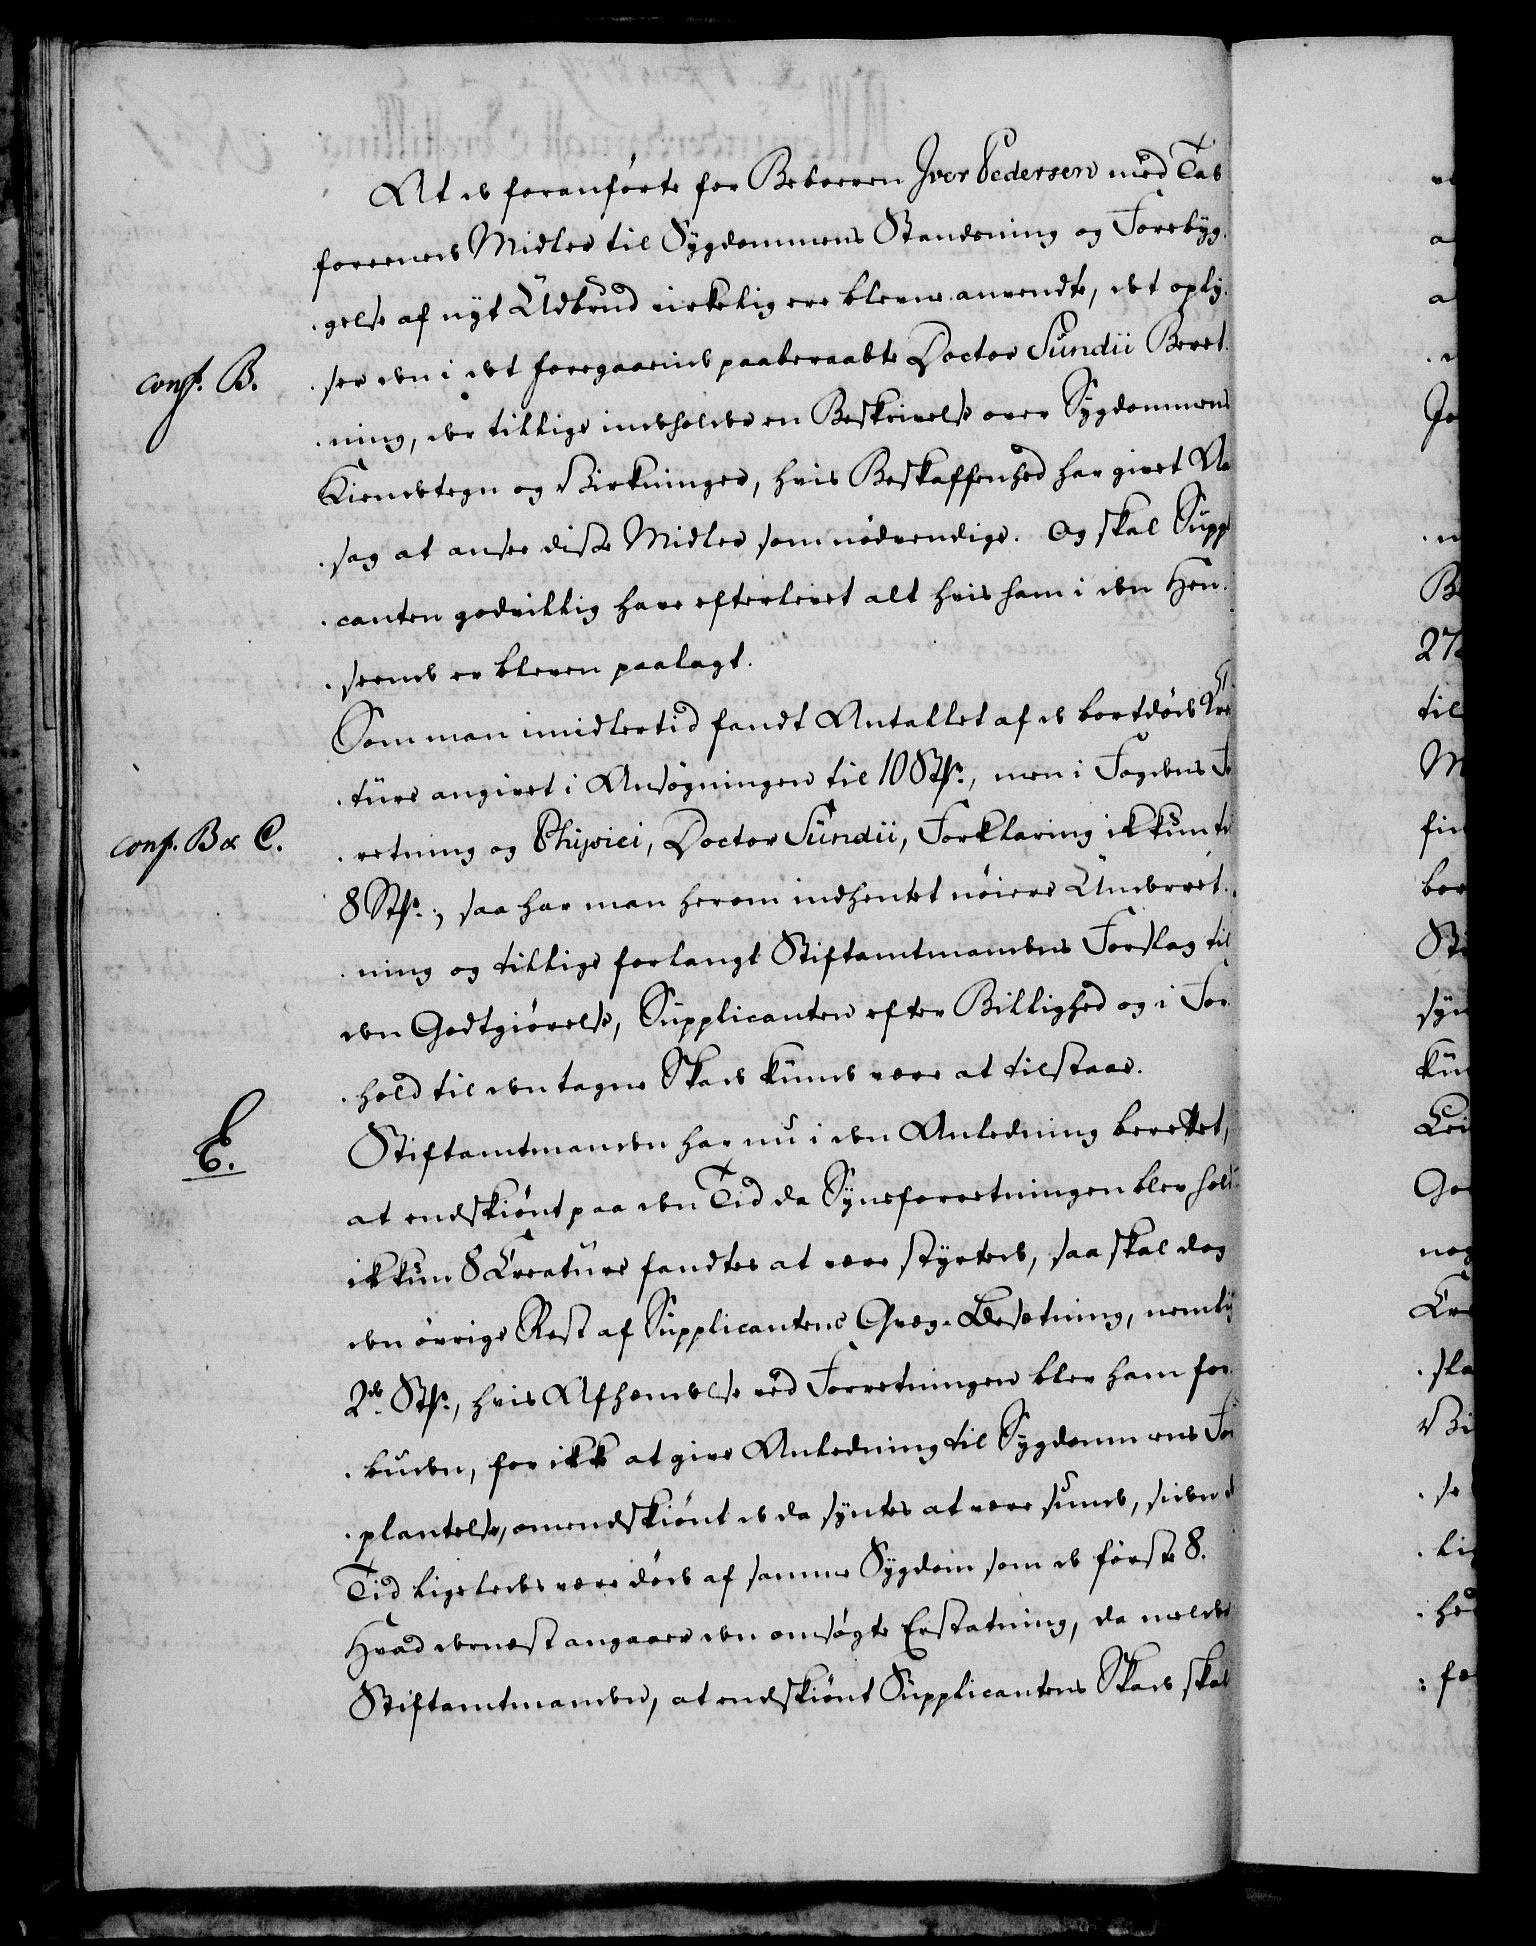 At de foranførte for Beboeren Iver Pedersen med Tab
foreenede Midler til Sygdommens Standsning og Forebyg-
gelse af nyt Udbrud virkelig ere blevne anvendte, det oply-
conf. B.
ser den i det foregaaende paaberaabte Doctor Sundii Beret-
ning, der tillige indeholder en Beskrivelse over Sygdommens
Kiendetegn og Virkninger, hvis Beskaffenhed har givet Aa
sag at ansee disse Midler som nødvendige. Og skal Suppl
canten godvillig have efterlevet alt hvis ham i den Hen-
seende er bleven paalagt.
Som man imidlertid fandt Antallet af de bortdøde Cre
ture angivet i Ansøgningen til 10 Stk:, men i Fogdens F
conf. B & C.
retning og Physici, Doctor Sundii, Forklaring ikkun til
8 Stk:, saa har man herom indhentet nøiere Underret-
ning og tillige forlangt Stiftamtmandens Forslag til
den Godtgiørelse, Supplicanten efter Billighed og i For-
hold til den tagne Skade kunde være at tilstaae.
E.
Stiftamtmanden har nu i den Anledning berettet,
at endskiønt paa den Tid da Synsforretningen blev hold
ikkun 8 Creature fandtes at være styrtede, saa skal dog
den øvrige Rest af Supplicantens Qvæg-Besætning, nemlig
2de Stk:, hvis Afhændelse ved Forretningen blev ham for-
buden, for ikke at give Anledning til Sygdommens For
plantelse, omendskiønt de da syntes at være sunde, siden d
Tid ligeledes være døde af samme Sygdom som de første 8.
Hvad dernæst angaaer den ansøgte Erstatning, da melder
Stiftamtmanden, at endskiønt Supplicantens Skade skal